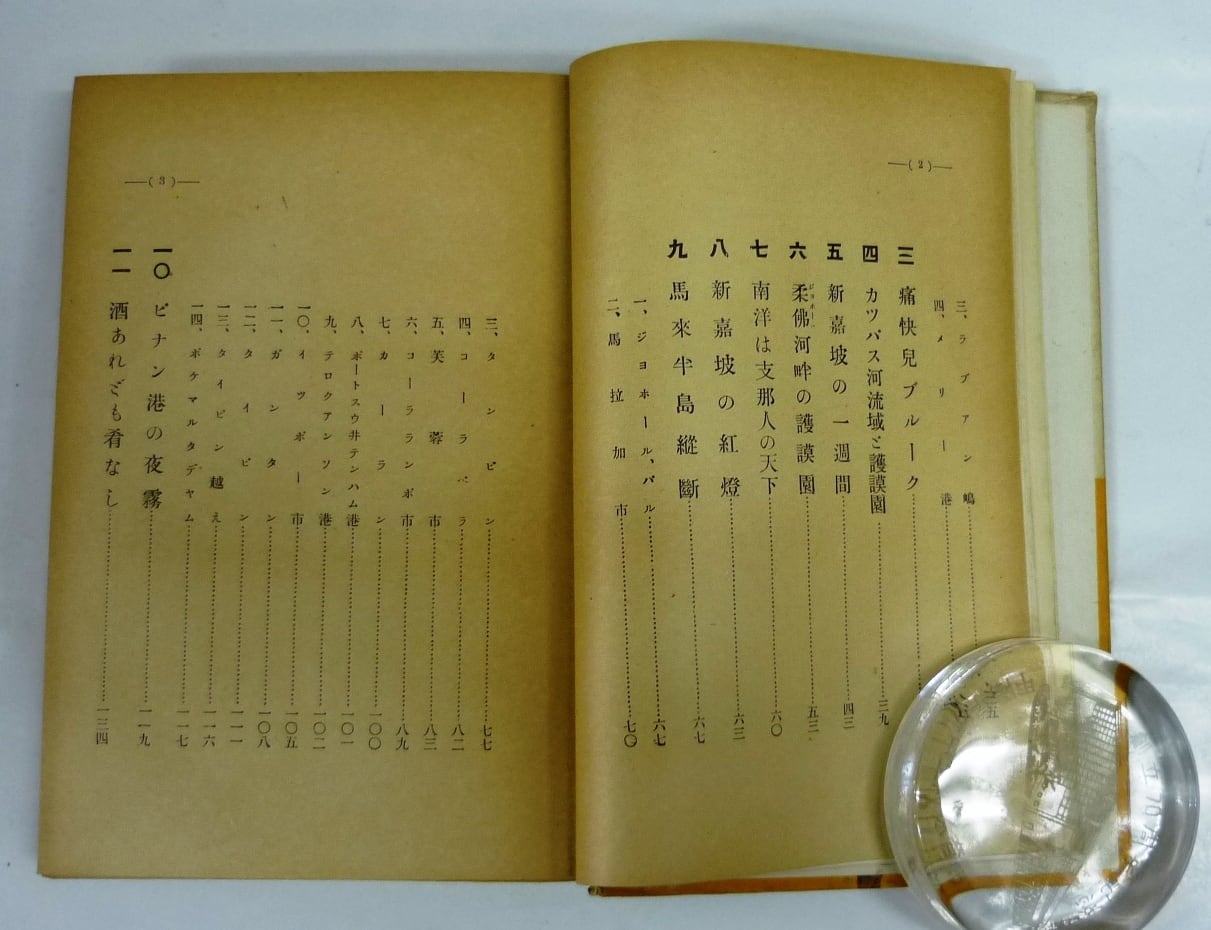 (2)
三、ラブアン嶋
四、メリー港
三 痛快兒ブルーク
四 カツパス河流域と護謨園 三九
五 新嘉坡の一週間 四三
六 柔佛河畔の護謨園 五三
ジヨホール
七 南洋は支那人の天下 六〇
八 新嘉坡の紅燈 六三
九 馬來半島縱斷 六七
一、ジヨホール、バル 六七
二、馬拉加市 七〇
(3)
三、タンピン 七七
四、コーラペラ 八二
五、芙蓉市 八三
六、コーラランポ市 八九
七、カーラン 一〇〇
八、ポートスウ井テンハム港 一〇一
九、テロクアンソン港 一〇二
一〇、イツポー市 一〇五
一一、ガンタン 一〇八
一二、タイピン 一一一
一三、タイピン越え 一一六
一四、ボケマルタデヤム 一一七
一〇 ピナン港の夜霧 一一九
一一 酒あれども肴なし 一三四